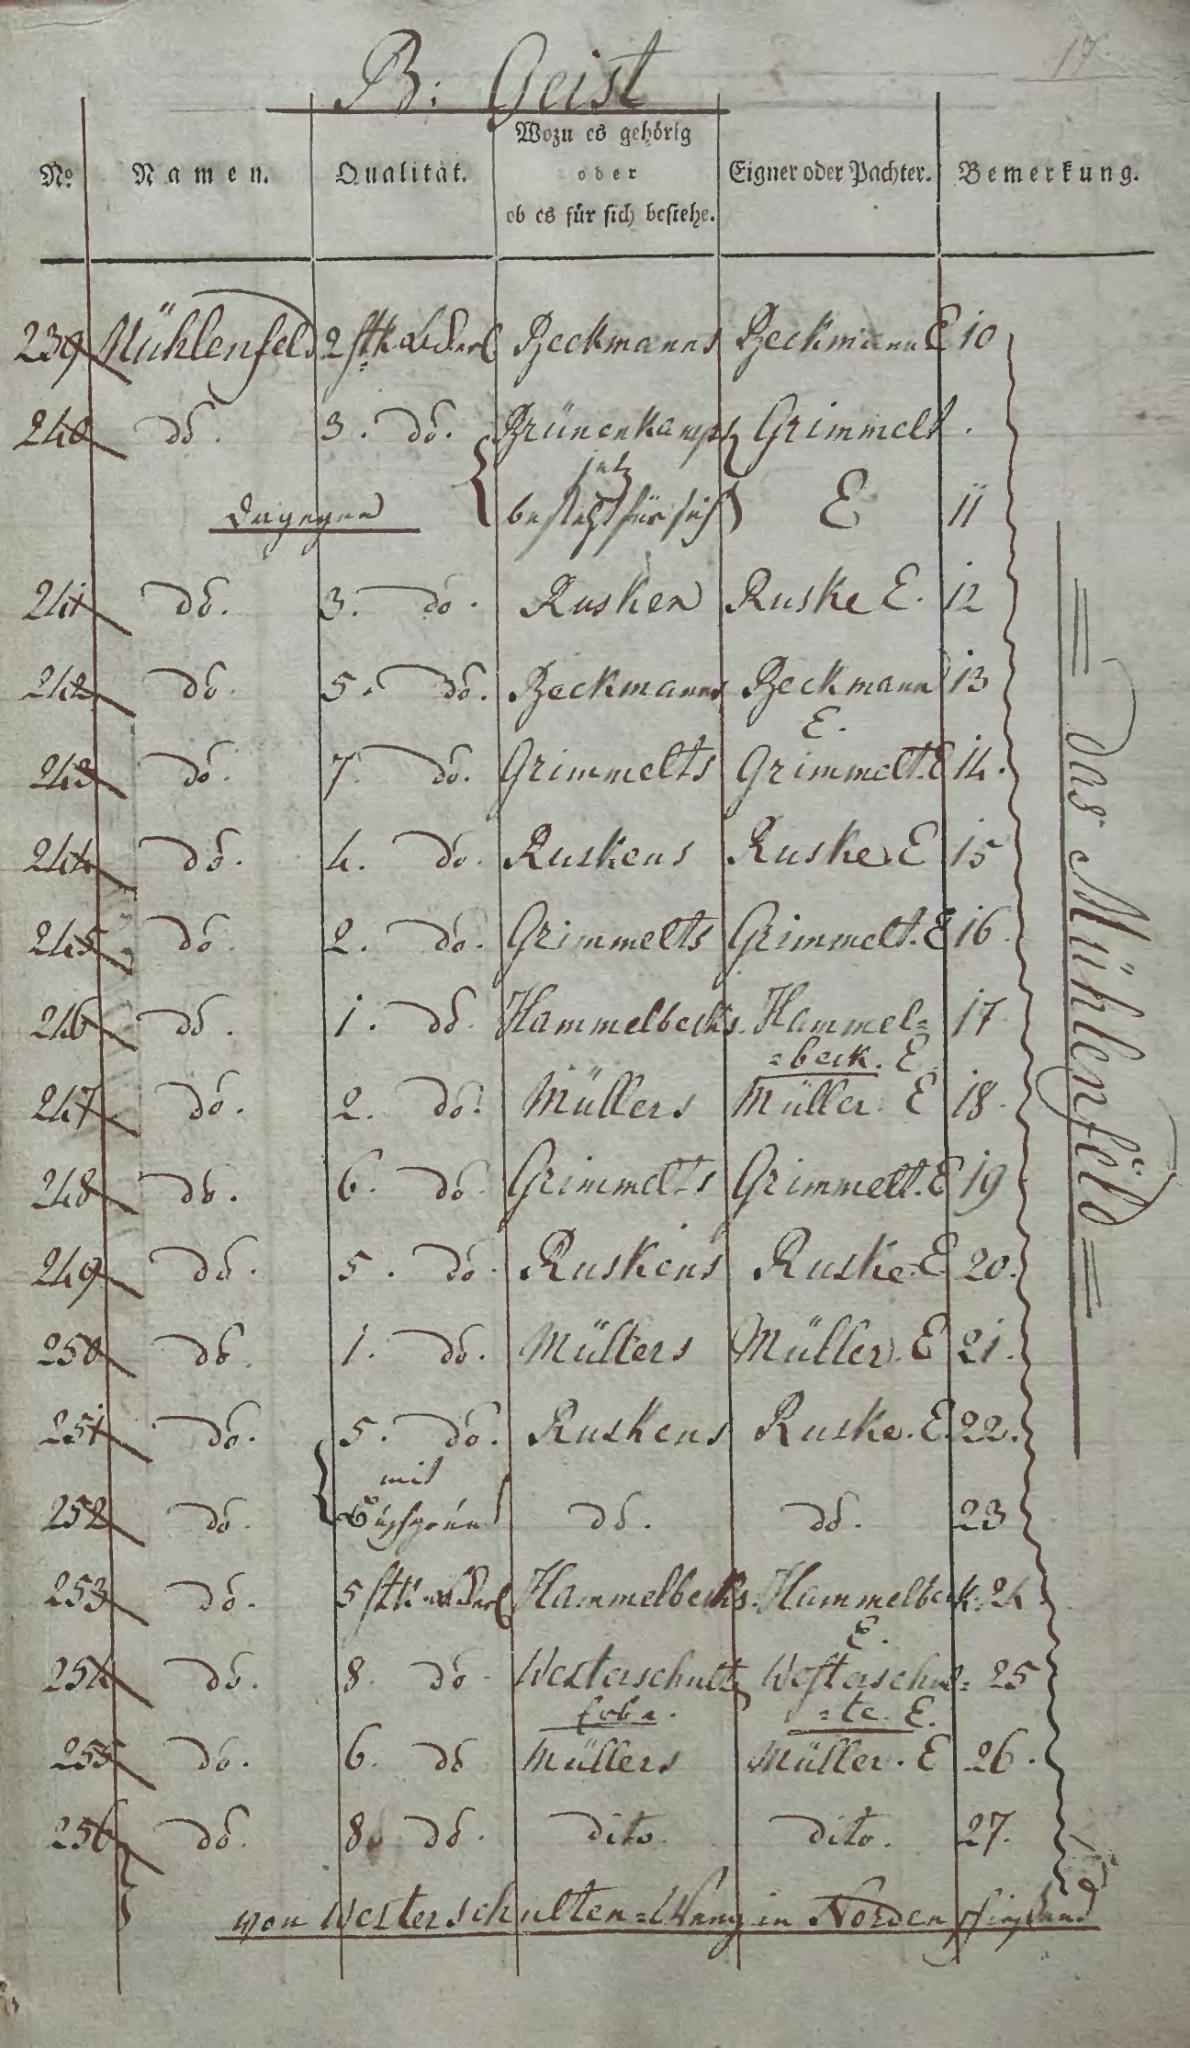 17
B: Geist
No. Namen. Qualität. Wozu es gehörig oder ob es für sich bestehe. Eigner oder Pachter. Bemerkung.
239 Mühlenfeld 2 stk Beckmanns Beckmann E 10
240 do. 3. do. Brünenkamps Grimmelt.
jetz
dagegen besteht für sich E 11
241 do. 3. do. Rusken Ruske E. 12
242 do. 5. do. Beckmanns Beckmann 13
E.
243 do. 7. do. Grimmelts Grimmelt. E 14.
244 do. 4. do. Ruskens Ruske. E 15
245 do. 2. do. Grimmelts Grimmelt. E 16
246 do. 1. do. Hammelbecks. Hammel= 17
=beck. E
247 do. 2. do. Müllers Müller. E 18
248 do. 6. do. Grimmelts Grimmelt. E 19
249 do. 5. do. Ruskens Ruske. E 20.
250 do. 1. do. Müllers Müller. E 21.
251 do. 5. do. Ruskens Ruske. E. 22.
mit
252 do. do. do. 23
253 do. 5 stk Hammelbecks. Hammelbeck. 24
E.
254 do. 8. do. Westerschulte Westerschul= 25
=te. E.
255 do. 6. do Müllers Müller. E 26.
256 do. 8. do. dito. dito. 27.
von Westerschulten= in Norden
das Mühlenfeld